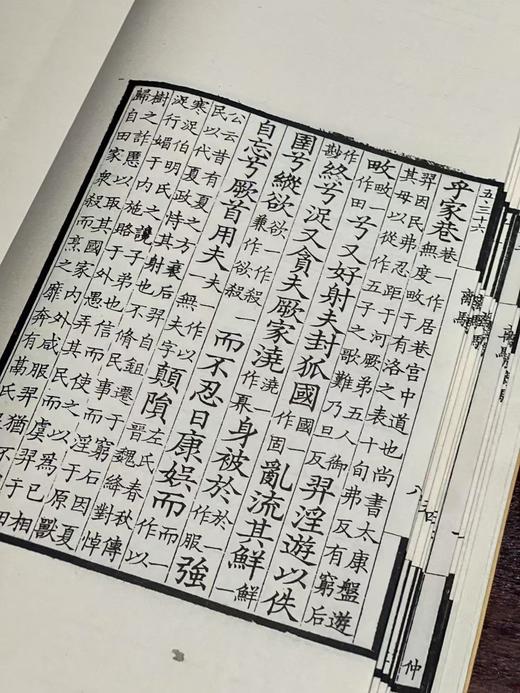 五三六
乎家巷巷一作居巷宮中道也尚書太康盤遊
無度畋于有洛之表十旬弗反有窮后
羿因民弗忍距于河厥弟五人御
其母以從作五子之歌難乃旦反羿淫遊以佚
畋畋一作田兮又好射夫封狐國國一作固亂流其鮮鮮一作尠
終兮浞又貪夫厥家澆澆一作奡身被於於一作服強
圉兮縱欲欲一作殺一兼作欲殺而不忍日康娛而而一作以
自忘兮厥首用夫夫一作以一無夫字顛隕左氏春秋傳晉魏絳對悼
公云昔有夏之方衰后羿自鉏遷于窮石因夏
民以代夏政恃其射也不脩民事而淫于原獸
寒浞伯明氏之讒子弟也信而使之以為己相
浞行媚于內施賂于外愚弄其民而虞羿于田
樹之詐慝以取其國家內外咸服羿猶不
歸自田家衆殺而烹之靡奔有鬲氏
離騷
八
仲